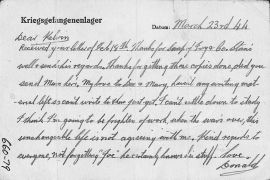 Kriegsgefangenenlager Datum: March 23rd 44
Dear Kelvin
Received your letter of Feb 18th. Thanks for Stan's
wife send his regards, thanks for getting those copies done, did you
send Muir her, My love to Dee & Mary, haven't any writing mat-
erial left so can't write to Dee just yet, I can't settle down to study
I think I'm going to be fitter of work when the war's over, this
unchangeable life is not agreeing with me. Send regards to
everyone, not forgetting "Joe" he certainly knows his stuff. Love
Donald